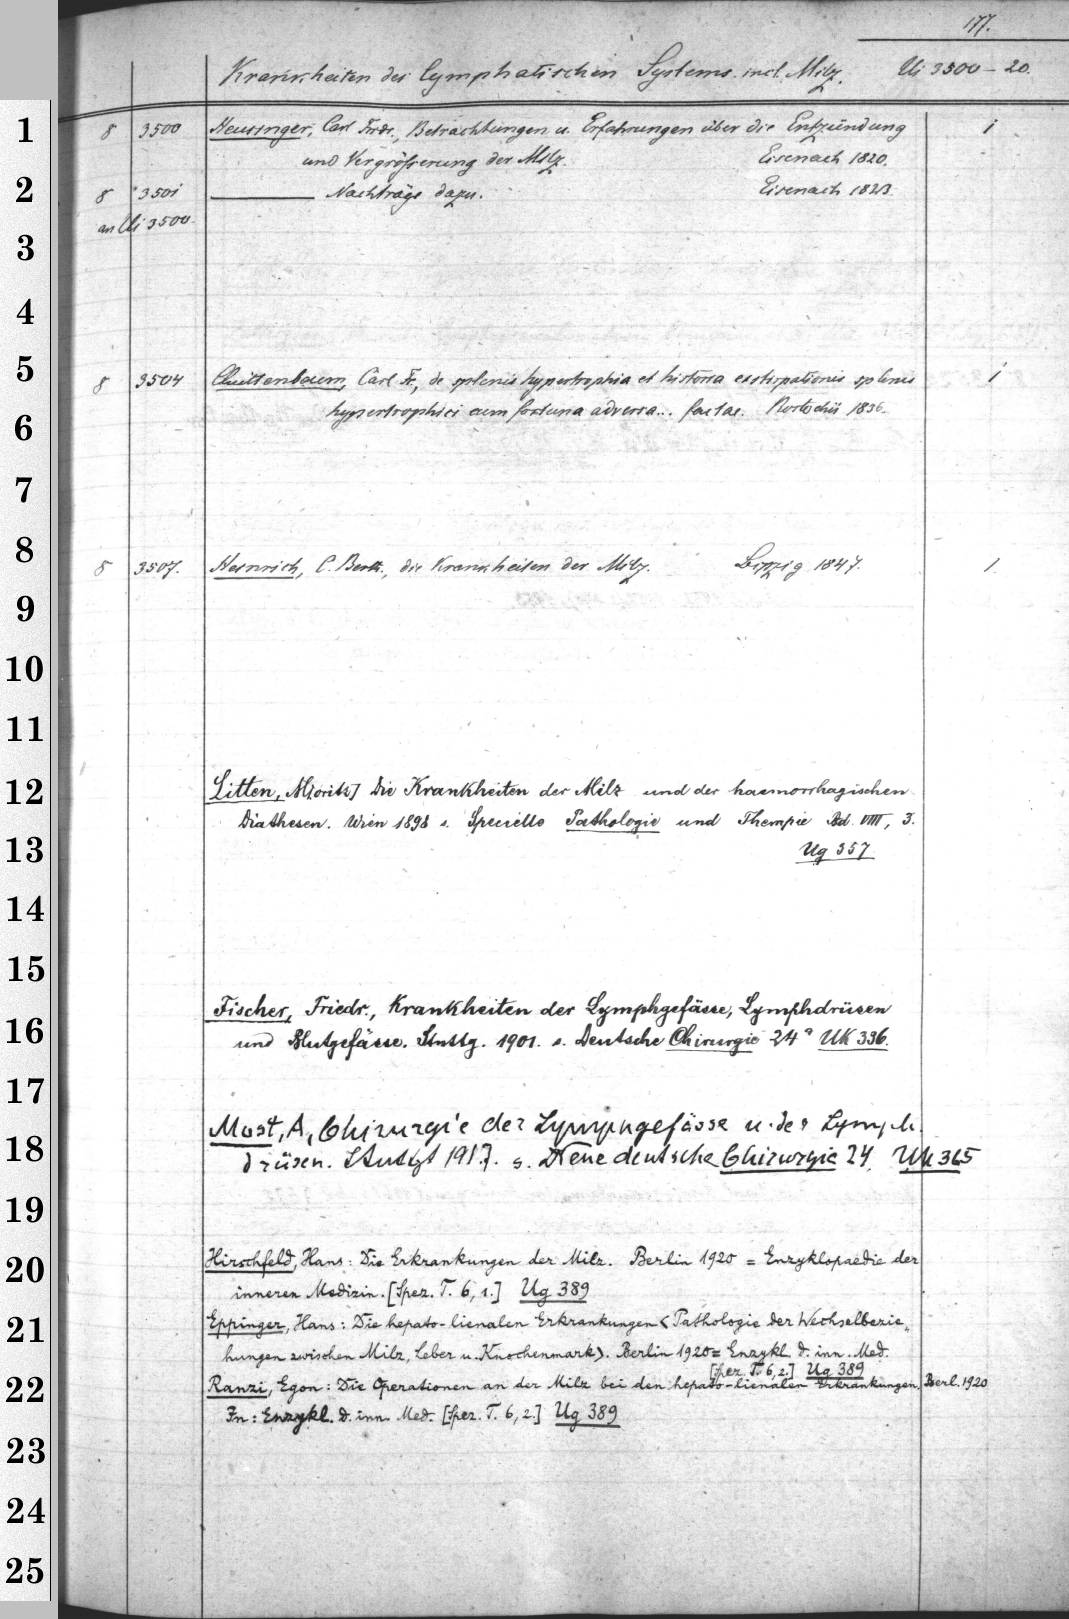 177.
Krankheiten des lymphatischen Systems incl. Milz. Ui 3500-20.
1
8 3500 Heusinger, Carl Frdr., Betrachtungen u. Erfahrungen über die Entzündung 1
und Vergrößerung der Milz. Eisenach 1820.
2
8 3501 Nachträge dazu. Eisenach 1823.
an Ui 3500.
3
4
5
8 3504 Quittenbaum, Carl Fr., de splenis hypertrophia et historia exstirpationis splenis 1
hypertrophici cum fortuna adversa... factae. Rostochii 1836.
6
7
8
8 3507. Heinrich, C. Berth., die Krankheiten der Milz. Leipzig 1847. 1.
9
10
11
12
Litten, M[oritz] Die Krankheiten der Milz und der haemorrhagischen
Diathesen. Wien 1898 s. Specielle Pathologie und Therapie Bd. VIII, 3.
13
Ug 357
14
15
Fischer, Friedr., Krankheiten der Lymphgefässe, Lymphdrüsen
16
und Blutgefässe. Stuttg. 1901. s. Deutsche Chirurgie 24ª UK 336.
17
Most, A., Chirurgie der Lymphgefässe u. der Lymph.
18
drüsen. Stuttgt 1917. s. Neue deutsche Chirurgie 24. Uk 365
19
Hirschfeld, Hans: Die Erkrankungen der Milz. Berlin 1920 = Enzyklopaedie der
20
inneren Medizin. [Spez. T. 6, 1.] Ug 389
21
Eppinger, Hans: Die hepato-lienalen Erkrankungen < Pathologie der Wechselbezie„
hungen zwischen Milz, Leber u. Knochenmark). Berlin 1920 = Enzykl. d. inn. Med.
[Spez. T. 6, 2.] Ug 389
22
Ranzi, Egon: Die Operationen an der Milz bei den hepato-lienalen Erkrankungen. Berl. 1920
In: Enzykl. d. inn. Med. [Spez. T. 6, 2.] Ug 389
23
24
25